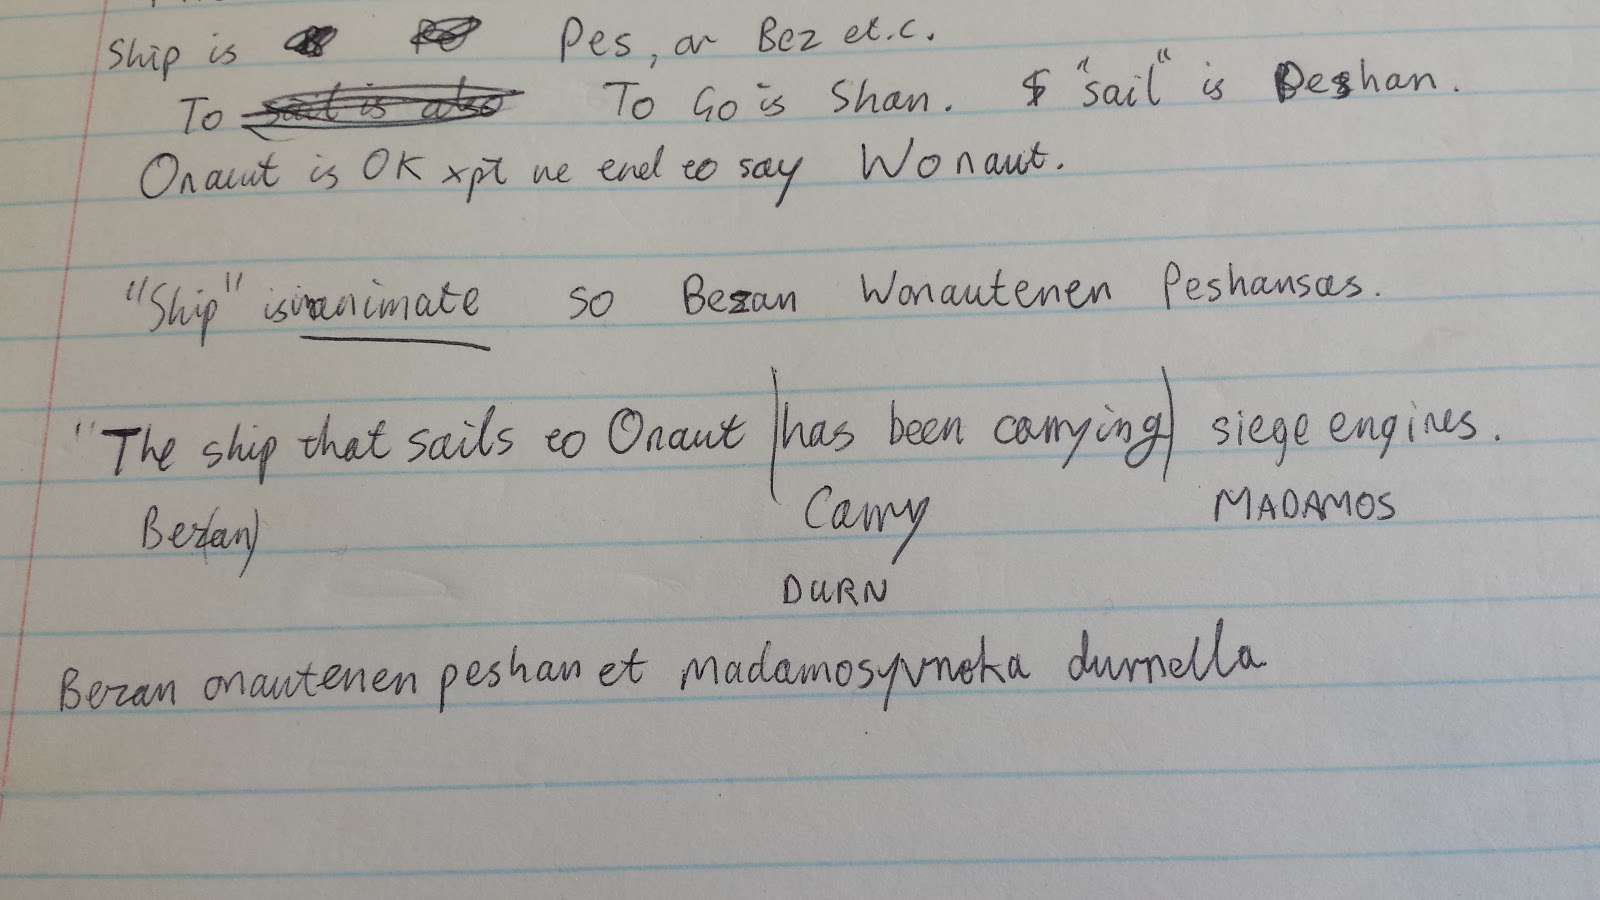 Ship is Pes, or Bez et.c.
To To Go is Shan. $ "sail" is Peshan.
Onaut is OK xpt we end to say Wonaut.
"Ship" is inanimate so Bezan Wonautenen Peshansas.
"The ship that sails to Onaut | has been carrying | siege engines.
Bez(an) Carry MADAMOS
DURN
Bezan onautenen peshan et madamosyvnoka durnella